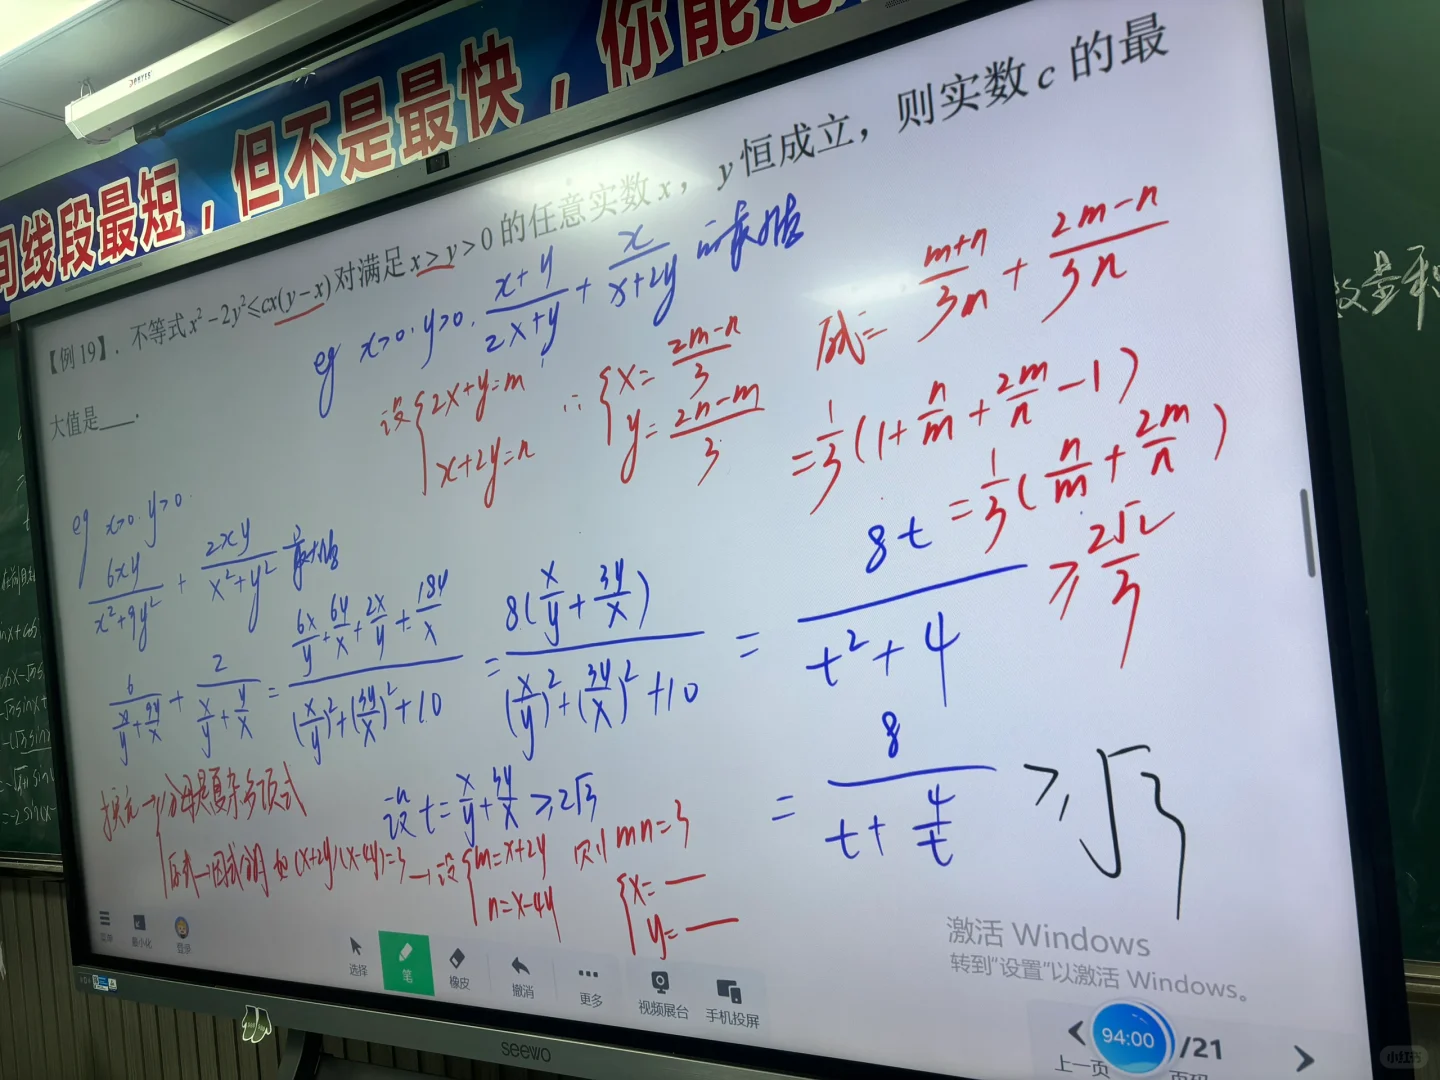 间线段最短，但不是最快，你能
DONYES
【例 19】．不等式 x²－2y²≤cx(y－x) 对满足 x＞y＞0 的任意实数 x，y 恒成立，则实数 c 的最
大值是____．
eg x>0. y>0. \frac{x+y}{2x+y} + \frac{x}{x+2y}
设 { 2x+y=m
x+2y=n
∴ { x=\frac{2m-n}{3}
y=\frac{2n-m}{3}
原式= \frac{m+n}{3m} + \frac{2m-n}{3n}
=\frac{1}{3}(1+\frac{n}{m}+\frac{2m}{n}-1)
=\frac{1}{3}(\frac{n}{m}+\frac{2m}{n})
≥\frac{2\sqrt{2}}{3}
eg x>0. y>0
\frac{6xy}{x²+9y²} + \frac{2xy}{x²+y²} 最大值
\frac{6}{\frac{x}{y}+\frac{9y}{x}} + \frac{2}{\frac{x}{y}+\frac{y}{x}} = \frac{\frac{6x}{y}+\frac{6y}{x}+\frac{2x}{y}+\frac{18y}{x}}{(\frac{x}{y})²+(\frac{3y}{x})²+10} = \frac{8(\frac{x}{y}+\frac{3y}{x})}{(\frac{x}{y})²+(\frac{3y}{x})²+10} = \frac{8t}{t²+4}
设 t=\frac{x}{y}+\frac{3y}{x}≥2\sqrt{3}
= \frac{8}{t+\frac{4}{t}} ≥ \sqrt{3}
换元→{ 分母是复杂多项式
因式分解 如 (x+2y)(x-4y)=3→设 { m=x+2y 则 mn=3
n=x-4y
{ x=—
y=—
激活 Windows
转到"设置"以激活 Windows。
最小化
登录
选择
笔
橡皮
撤消
更多
视频展台
手机投屏
上一页
94:00
/21
页码
seewo
小红书